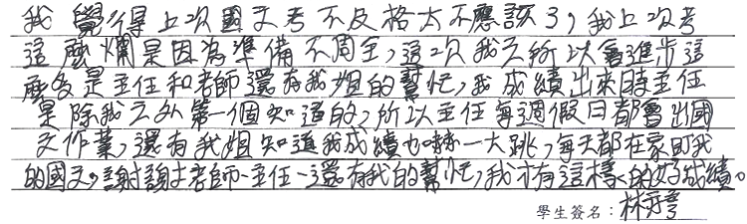 我覺得上次國文考不及格太不應該了,我上次考
這麼爛是因為準備不周全,這次我之所以會進步這
麼多是主任和老師還有我姐的幫忙,我成績出來時主任
是除我之外第一個知道的,所以主任每週假日都會出國
文作業,還有我姐知道我成績也嚇一大跳,每天都在家盯我
的國文,謝謝老師、主任、還有我的幫忙,我才有這樣的好成績。
學生簽名:林